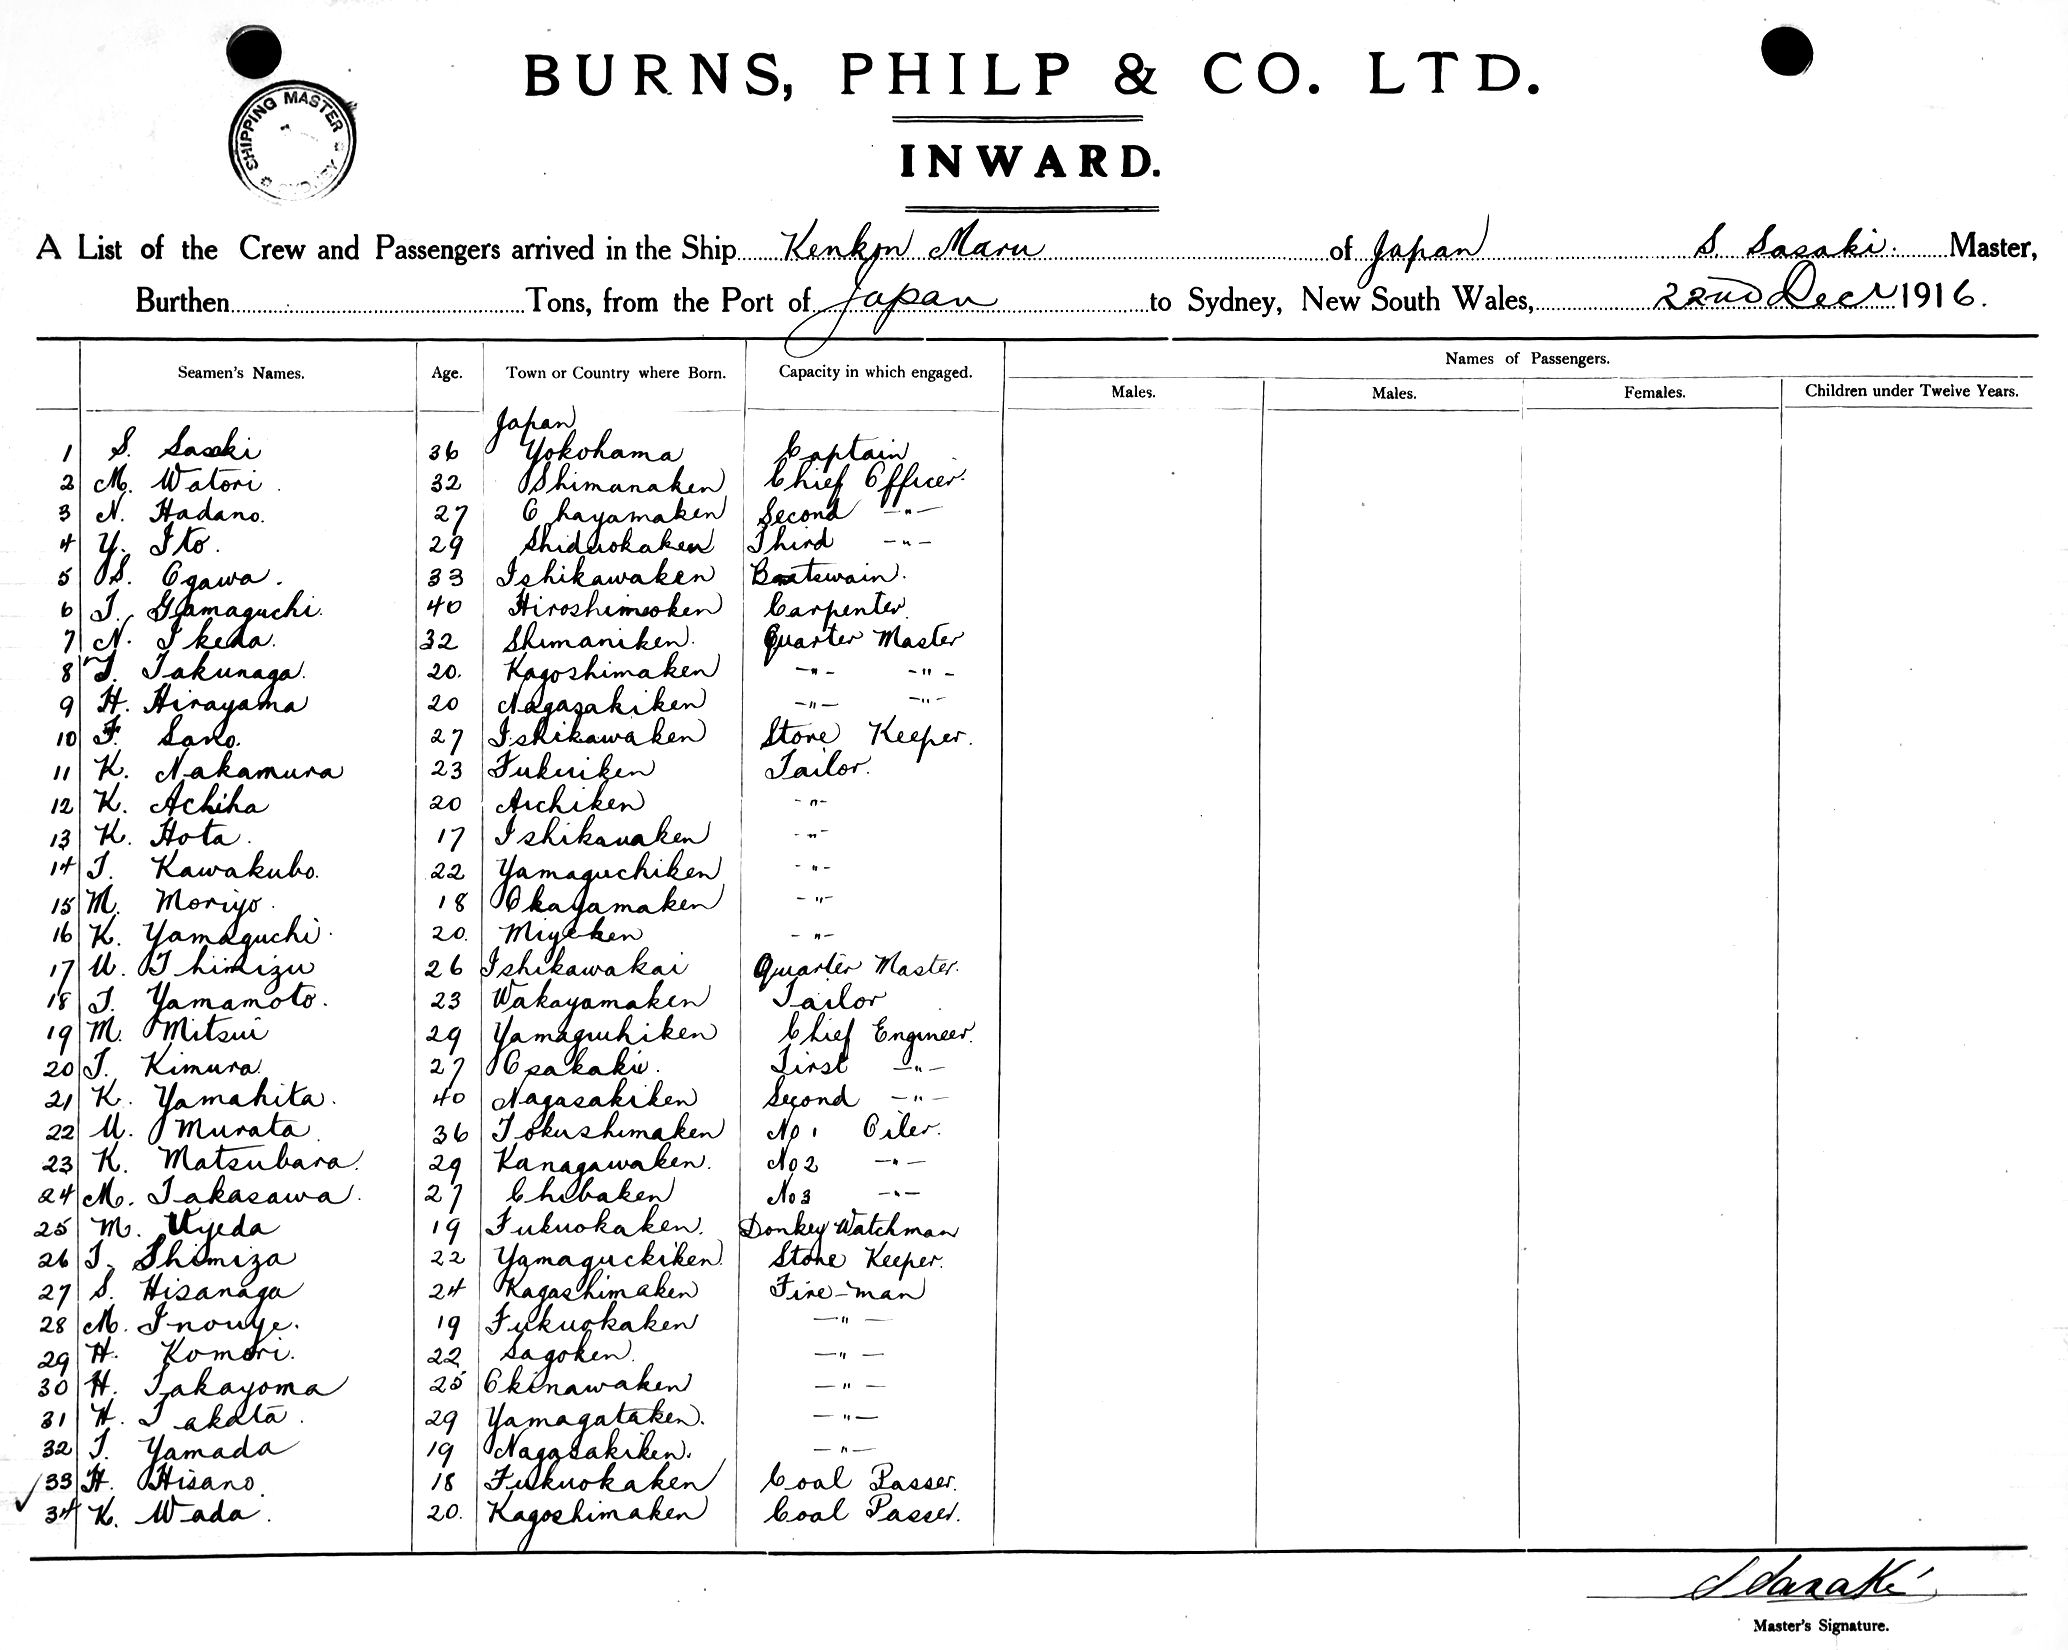 BURNS, PHILP & CO. LTD.
SHIPPING MASTER SYDNEY
INWARD.
A List of the Crew and Passengers arrived in the Ship Kenkon Maru of Japan S. Sasaki. Master,
Burthen Tons, from the Port of Japan to Sydney, New South Wales, 22nd Decr 1916.
Seamen's Names. Age. Town or Country where Born. Capacity in which engaged. Names of Passengers.
Males. Males. Females. Children under Twelve Years.
Japan
1 S. Sasaki 36 Yokohama Captain
2 M. Watori 32 Shimanaken Chief Officer.
3 N. Hadano. 27 Okayamaken Second -"-
4 Y. Ito. 29 Shiduokaken Third -"-
5 S. Ogawa. 33 Ishikawaken Boatswain.
6 T. Yamaguchi. 40 Hiroshimaken Carpenter
7 N. Ikeda. 32 Shimaniken. Quarter Master
8 T. Takunaga. 20. Kagoshimaken -"- -"-
9 H. Hirayama 20 Nagasakiken -"- -"-
10 F. Sano. 27 Ishikawaken Store Keeper.
11 K. Nakamura 23 Fukuiken Tailor.
12 K. Achiha 20 Aichiken -"-
13 K. Hota. 17 Ishikauaken -"-
14 T. Kawakubo. 22 Yamaguchiken -"-
15 M. Moriyo. 18 Okayamaken -"-
16 K. Yamaguchi. 20. Miyeken -"-
17 U. Thimizu 26 Ishikawakai Quarter Master.
18 T. Yamamoto. 23 Wakayamaken Tailor
19 M. Mitsui 29 Yamaguchiken Chief Engineer.
20 T. Kimura. 27 Osakaku. First -"-
21 K. Yamahita. 40 Nagasakiken Second -"-
22 U. Murata. 36 Tokushimaken No 1 Oiler.
23 K. Matsubara. 29 Kanagawaken. No 2 -"-
24 M. Takasawa. 27 Chibaken No 3 -"-
25 M. Uyeda 19 Fukuokaken. Donkey Watchman
26 T. Shimiza 22 Yamaguckiken Store Keeper.
27 S. Hisanaga 24 Kagashimaken Fire-man
28 M. Inouye. 19 Fukuokaken -"-
29 H. Komori. 22 Sagoken. -"-
30 H. Takayoma 25 Okinawaken -"-
31 H. Takata. 29 Yamagataken. -"-
32 T. Yamada 19 Nagasakiken. -"-
33 H. Hisano. 18 Fukuokaken Coal Passer.
34 K. Wada. 20. Kagoshimaken Coal Passer.
S Sasaki
Master's Signature.